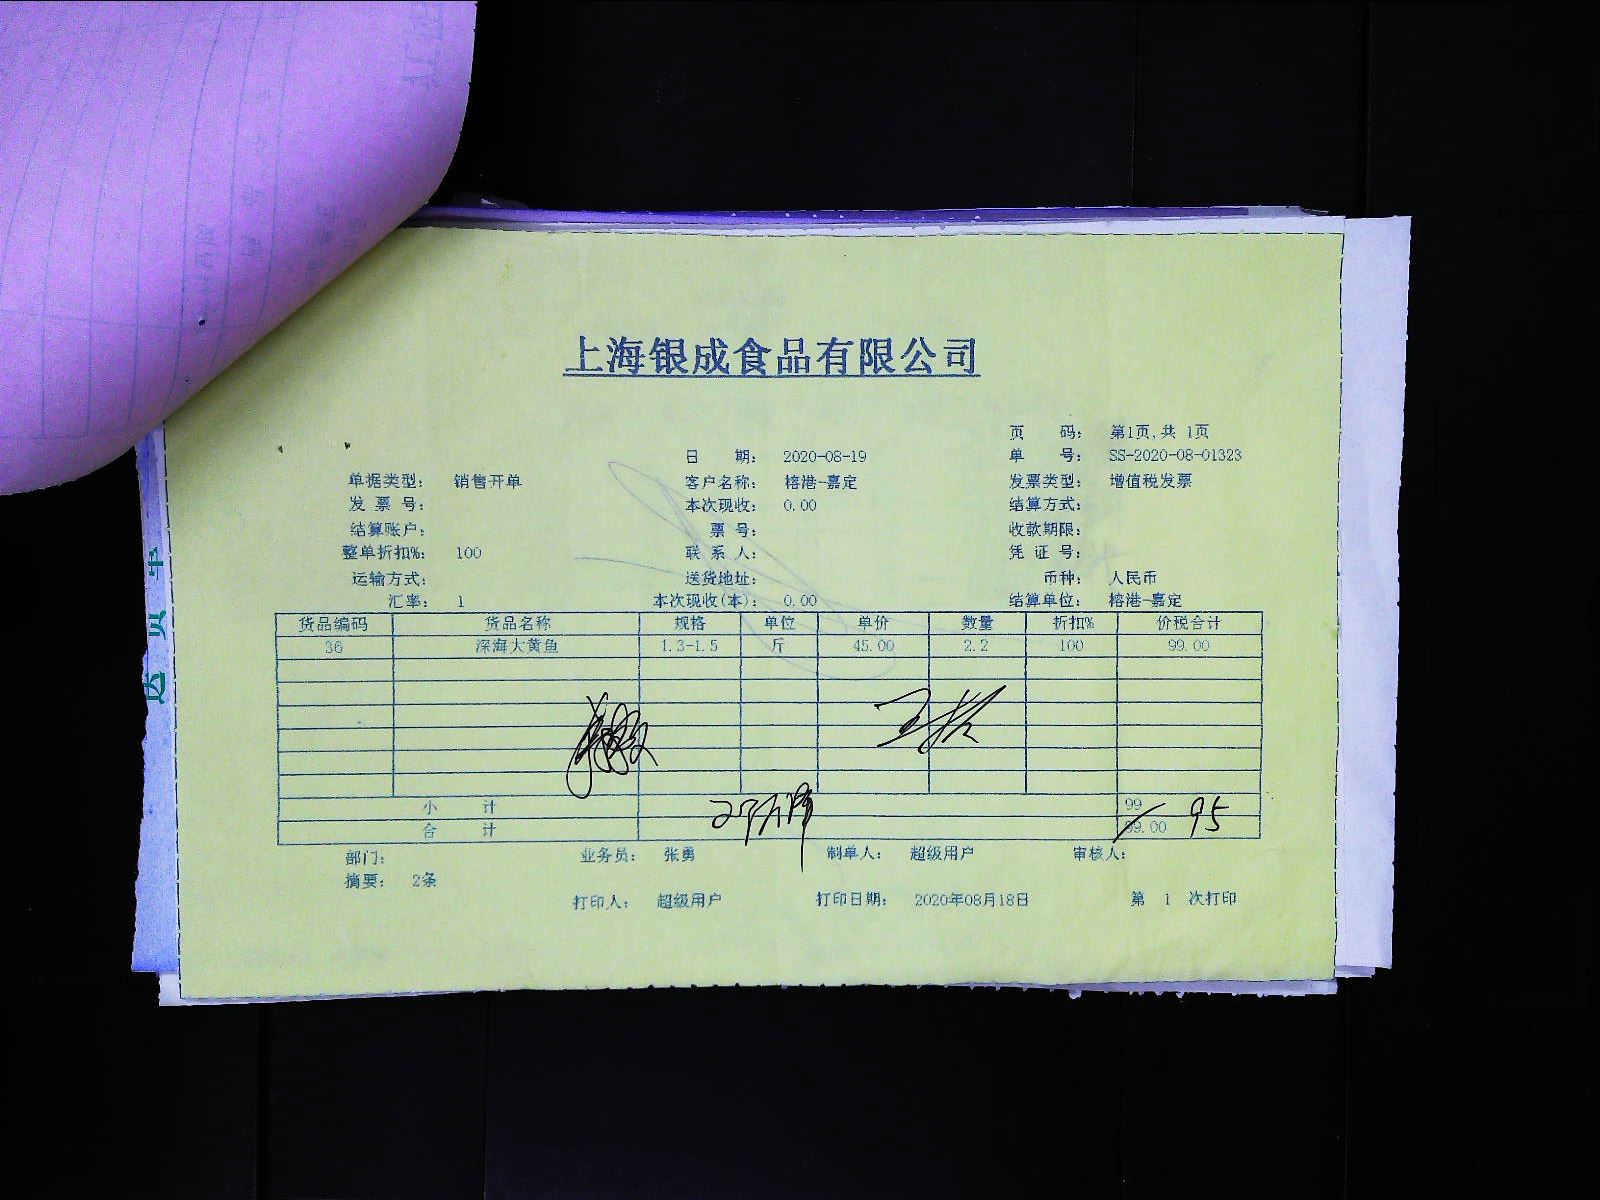 上海银成食品有限公司
页 码： 第1页,共 1页
日 期： 2020-08-19 单 号： SS-2020-08-01323
单据类型： 销售开单 客户名称： 榕港-嘉定 发票类型： 增值税发票
发 票 号： 本次现收： 0.00 结算方式：
结算账户： 票 号： 收款期限：
整单折扣%： 100 联 系 人： 凭 证 号：
运输方式： 送货地址： 币种： 人民币
汇率： 1 本次现收(本)： 0.00 结算单位： 榕港-嘉定
货品编码 货品名称 规格 单位 单价 数量 折扣% 价税合计
36 深海大黄鱼 1.3-1.5 斤 45.00 2.2 100 99.00
小 计 99
合 计 99.00 95
部门： 业务员： 张勇 制单人： 超级用户 审核人：
摘要： 2条
打印人： 超级用户 打印日期： 2020年08月18日 第 1 次打印